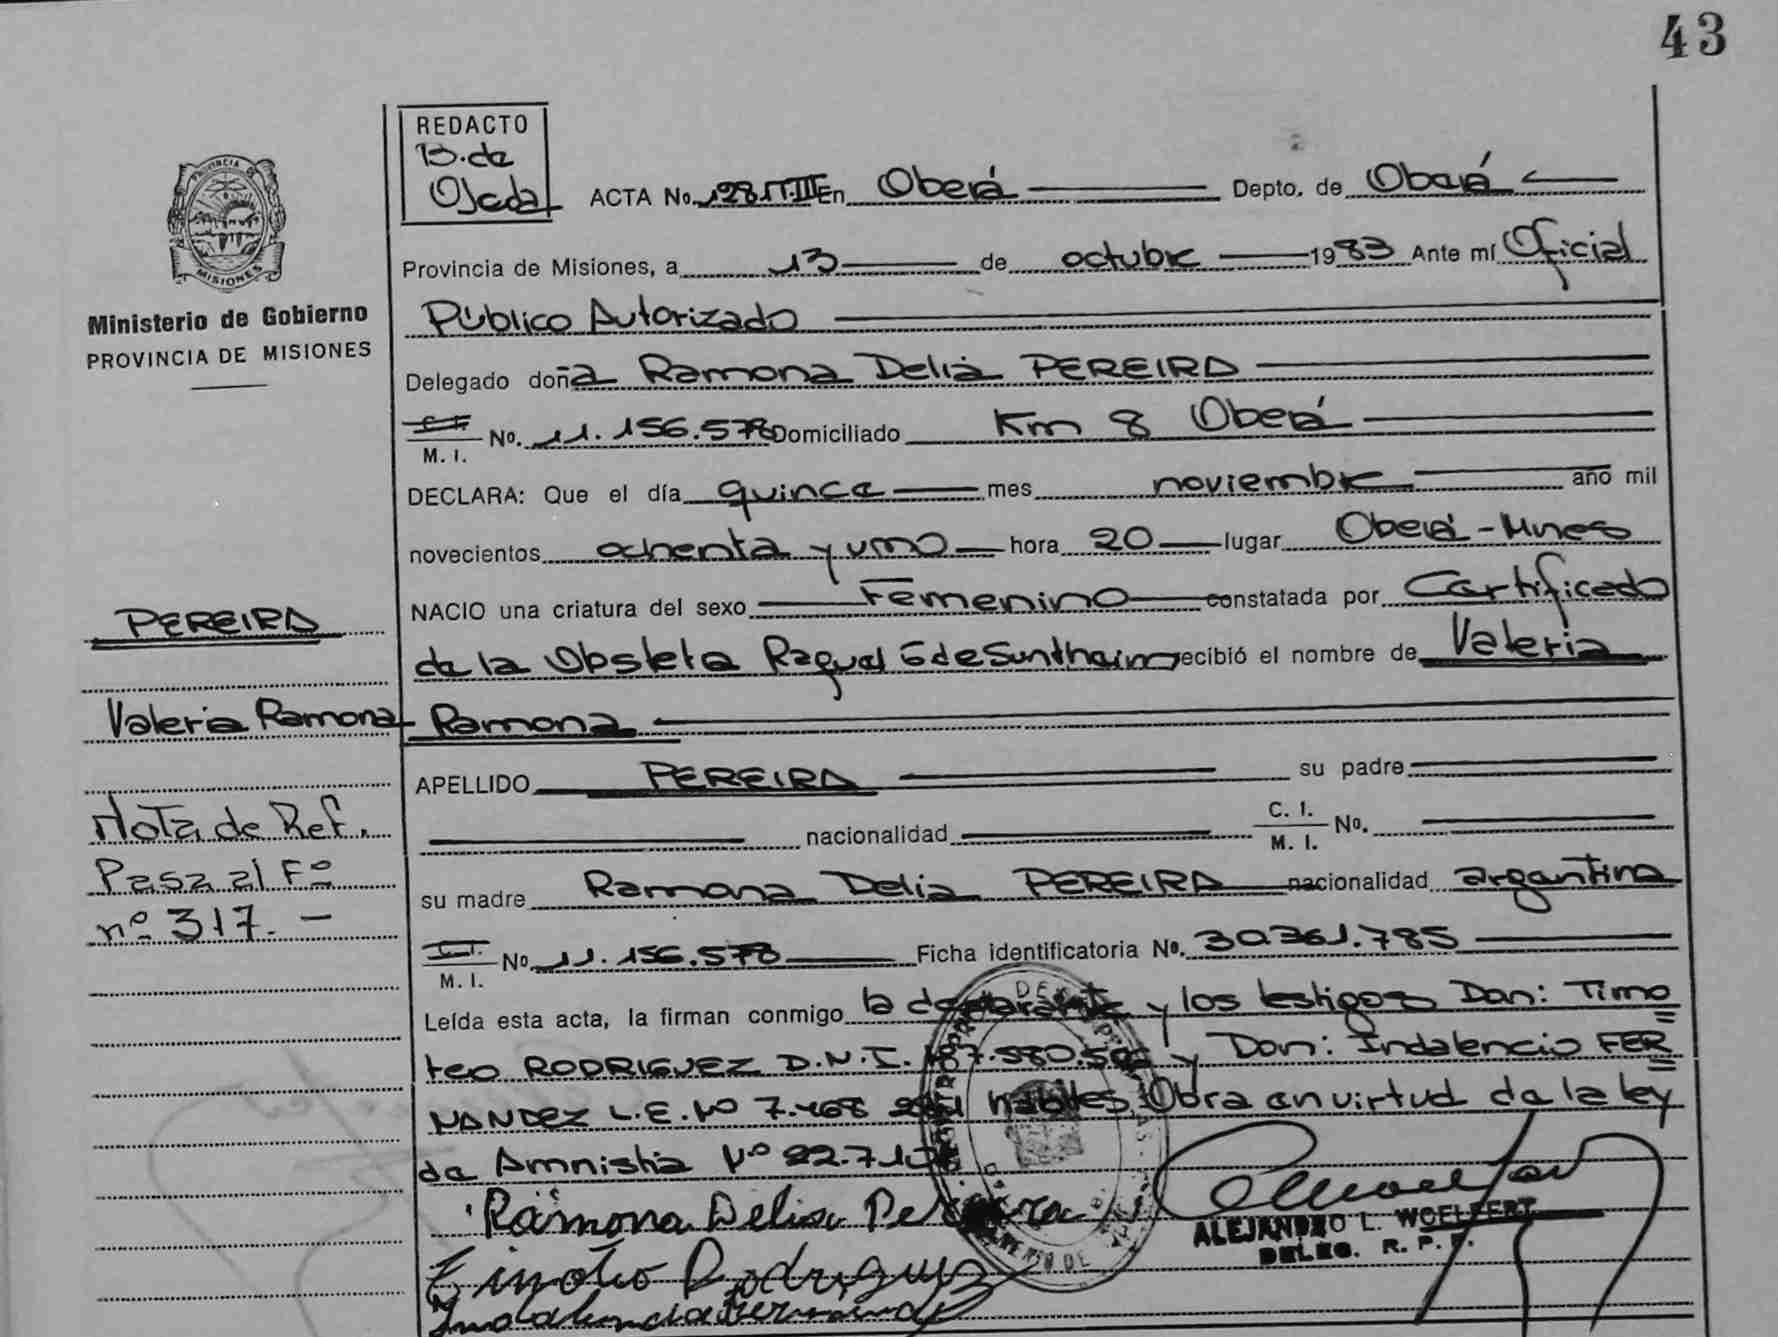 43
REDACTO
B. de
Ojeda
ACTA No. 128 T.III En Oberá Depto. de Oberá
Provincia de Misiones, a 13 de octubre 1983 Ante mí Oficial
Público Autorizado
Delegado doña Ramona Delia PEREIRA
No. 11.156.578 Domiciliado Km 8 Oberá
M. I.
DECLARA: Que el día quince mes noviembre año mil
novecientos ochenta y uno hora 20 lugar Oberá - Mnes
NACIO una criatura del sexo Femenino constatada por Certificado
de la Obsteta Raquel G de Sunthaim recibió el nombre de Valeria
Ramona
APELLIDO PEREIRA su padre
nacionalidad C. I. M. I. No.
su madre Ramona Delia PEREIRA nacionalidad argentina
No. 11.156.578 Ficha identificatoria No. 30.361.785
M. I.
Leída esta acta, la firman conmigo la declarante y los testigos Don: Timo
teo RODRIGUEZ D.N.I. y Don: Indalencio FER
NANDEZ L.E. Nº 7.468 hábiles. Obra en virtud de la ley
de Amnistía Nº
Ramona Delia Pereira
Timoteo Rodriguez
Indalencio Fernandez
ALEJANDRO L. WOELFERT
DELEG. R. P.
PROVINCIA
MISIONES
Ministerio de Gobierno
PROVINCIA DE MISIONES
PEREIRA
Valeria Ramona
Nota de Ref.
Pasa al Fº
nº 317. -